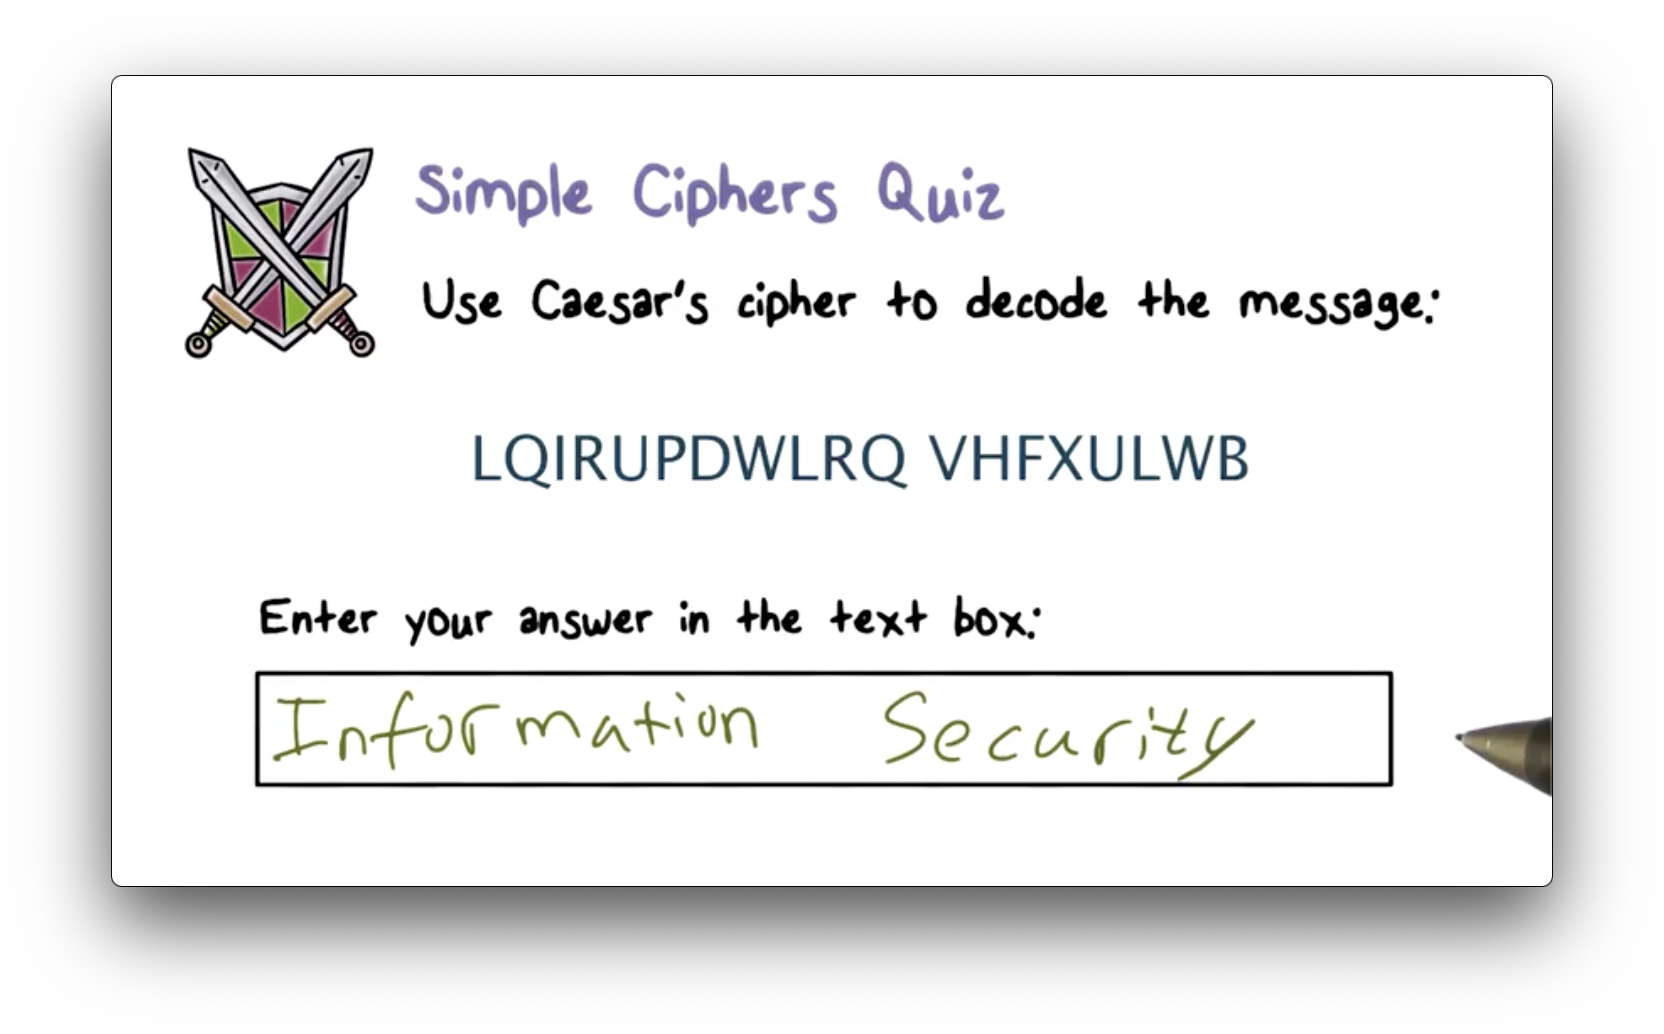 Simple Ciphers Quiz
Use Caesar's cipher to decode the message:
LQIRUPDWLRQ VHFXULWB
Enter your answer in the text box:
Information Security